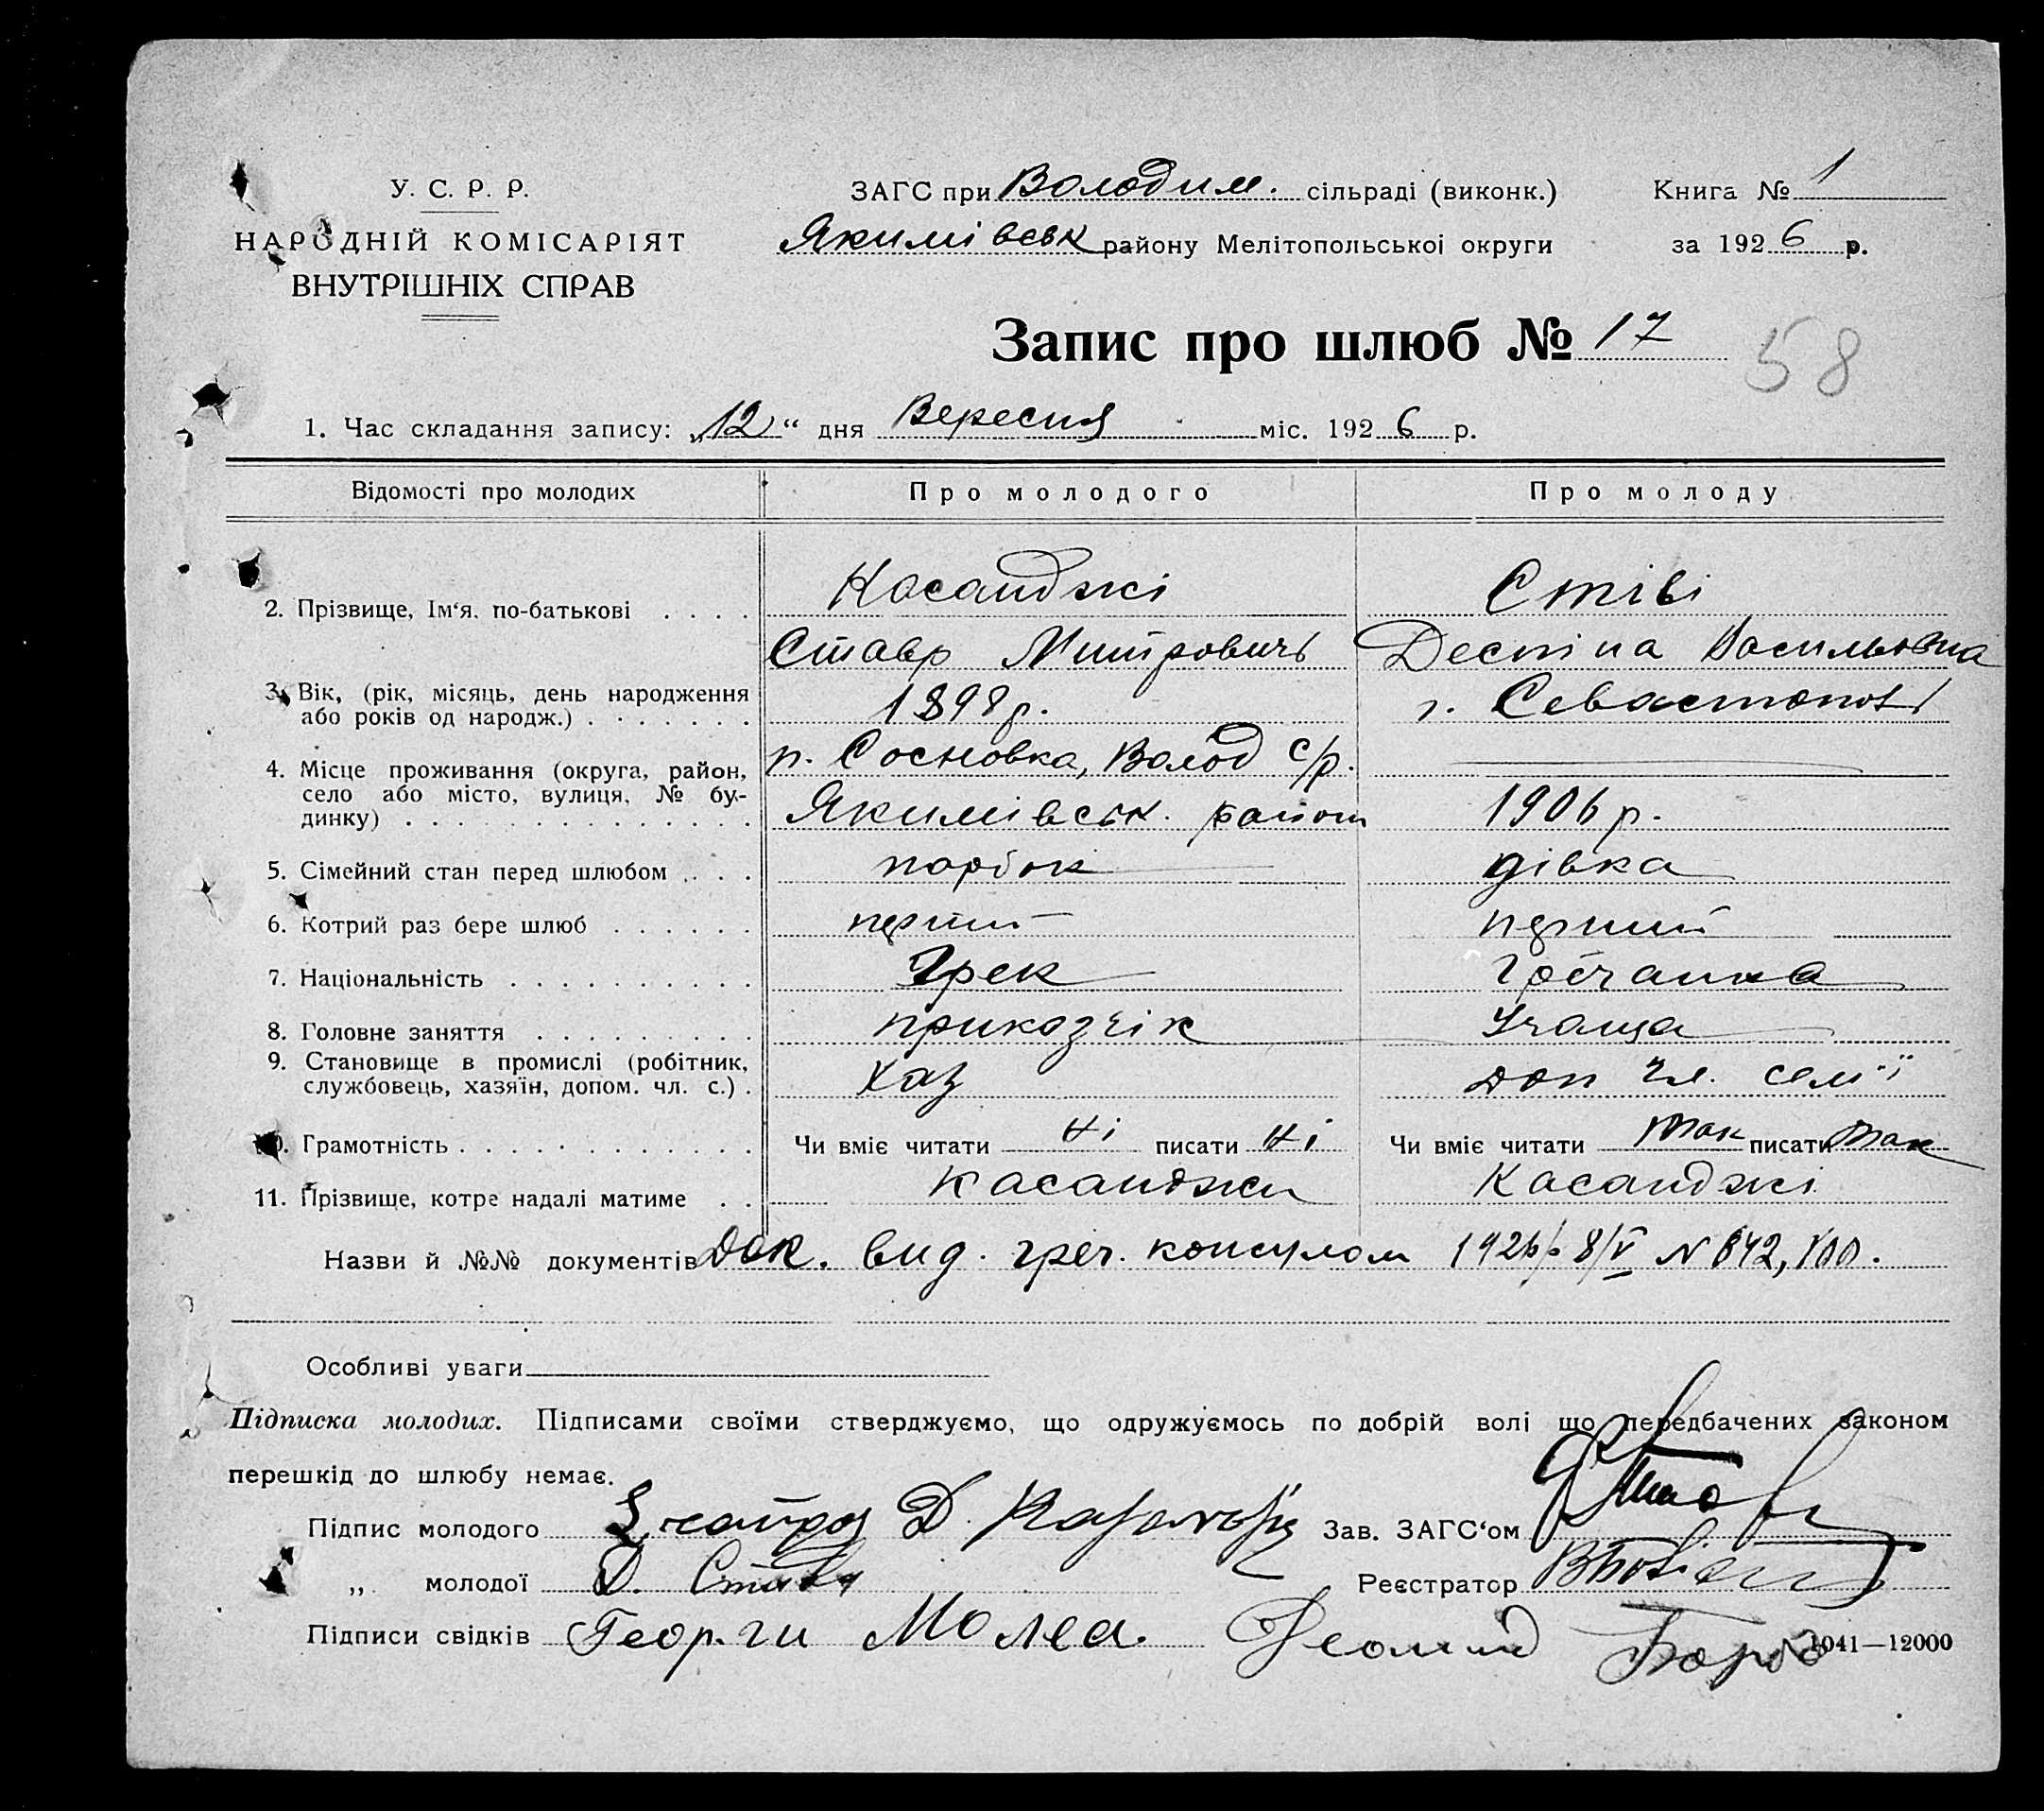 У. С. Р. Р.
НАРОДНІЙ КОМІСАРІЯТ
ВНУТРІШНІХ СПРАВ
ЗАГС при Володим. сільраді (виконк.) Книга № 1
Якимівськ району Мелітопольської округи за 1926 р.
Запис про шлюб № 17
58
1. Час складання запису: „12“ дня Вересня міс. 1926 р.
Відомості про молодих Про молодого Про молоду
2. Прізвище, Ім‘я, по-батькові Касанджі Стіві
Ставр Митровичь Деспіна Васильовна
3. Вік, (рік, місяць, день народження 1898 р. г. Севастополь
або років од народж.)
4. Місце проживання (округа, район, п. Сосновка, Волод с/р.
село або місто, вулиця, № бу-
динку) Якимівськ. район 1906 р.
5. Сімейний стан перед шлюбом парубок дівка
6. Котрий раз бере шлюб перший перший
7. Національність Грек Гречанка
8. Головне заняття приказчік Учаща
9. Становище в промислі (робітник, Хаз доп чл. сем'ї
службовець, хазяїн, допом. чл. с.)
10. Грамотність Чи вміє читати ні писати ні Чи вміє читати так писати так
11. Прізвище, котре надалі матиме Касанджи Касанджі
Назви й №№ документів Док. вид. греч. консулом 1926 р 8/V N 642,
Особливі уваги
Підписка молодих. Підписами своїми стверджуємо, що одружуємось по добрій волі що передбачених законом
перешкід до шлюбу немає.
Підпис молодого Зав. ЗАГС‘ом
„ молодої Д. Стиви Реєстратор
Підписи свідків Георги Молеа. Леонид
1041—12000